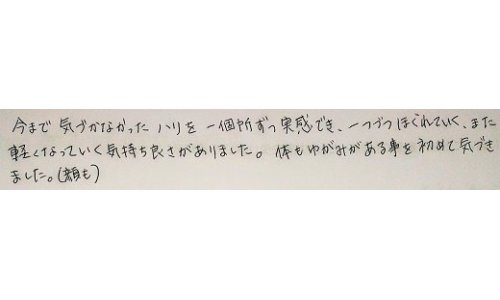 今まで気づかなかったハリを一個所ずつ実感でき、一つづつほぐれていく、また
軽くなっていく気持ち良さがありました。体もゆがみがある事を初めて気づき
ました。(顔も)